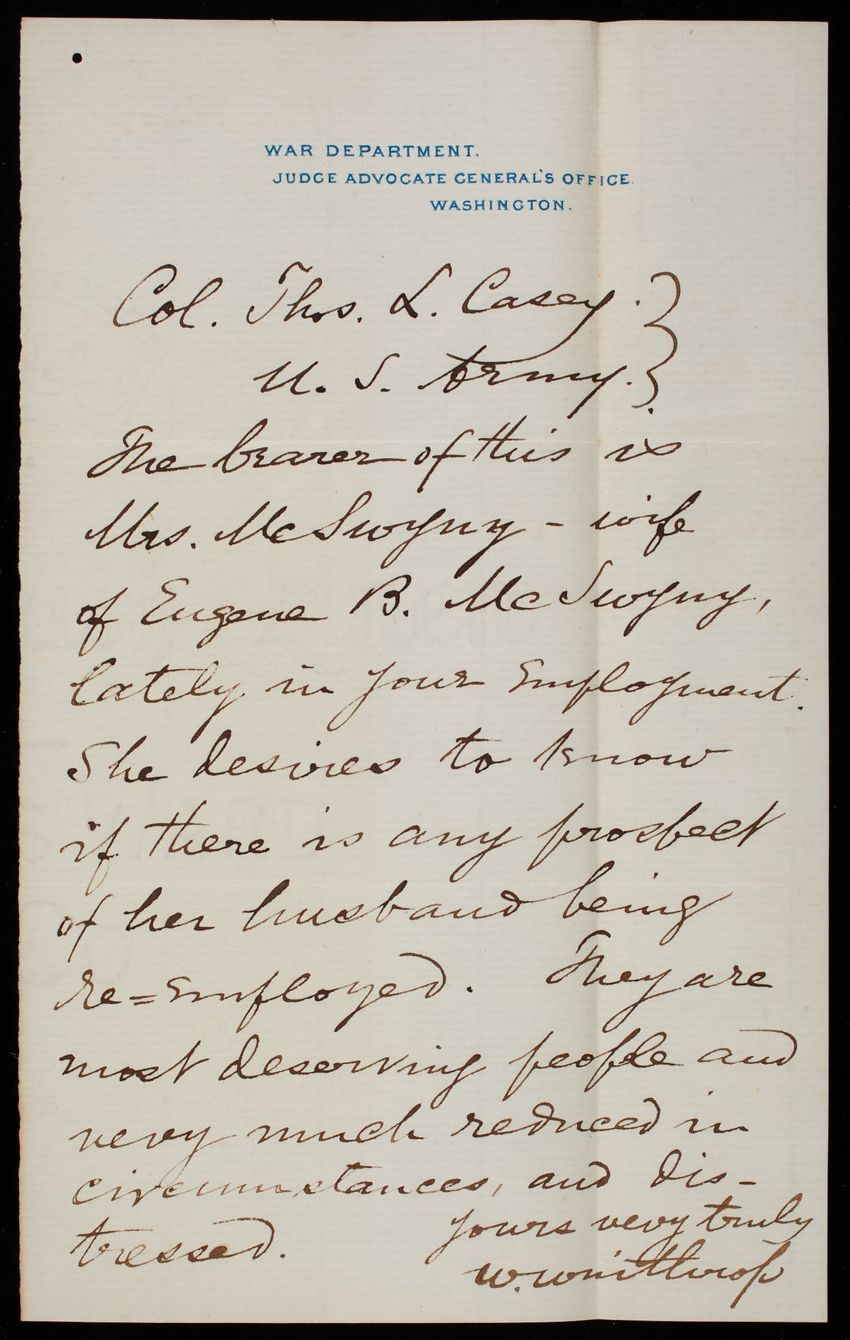 WAR DEPARTMENT.
JUDGE ADVOCATE GENERAL'S OFFICE.
WASHINGTON.
Col. Thos. L. Casey.
U. S. Army.
The bearer of this is
Mrs. McSwyny - wife
of Eugene B. McSwyny,
lately in your employment.
She desires to know
if there is any prospect
of her husband being
re=employed. They are
most deserving people and
very much reduced in
circumstances, and dis-
tressed.
Yours very truly
W. Winthrop